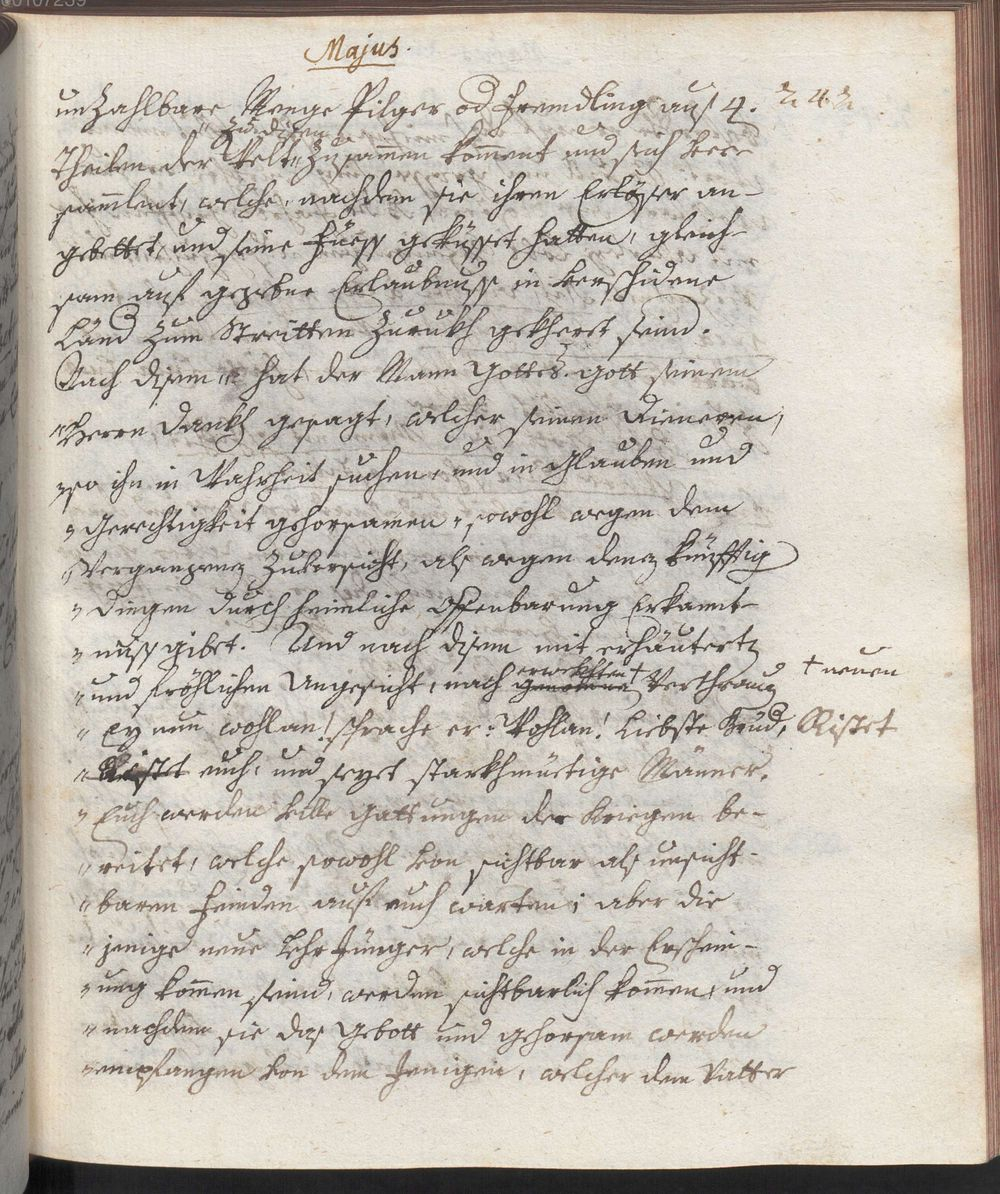 00107239
Majus.
unzahlbare Menge Pilger od Fremdling auß 4. 242
" zu disem
Theilen der Welt " zusammen komment und sich ver-
sammlent, welche, nachdem sie ihren Erlöser an-
gebettet, und seine Füess geküsset hatten, gleich-
sam auß gegebner Erlaubnuss in verschidene
Länd zum Streitten zurukh gekheret seind.
Nach disem " hat der Mann Gottes Gott seinem
" Herrn Dankh gesagt, welcher seinen Dieneren,
" so ihn in Wahrheit suchen, und in Glauben und
" Gerechtigkeit gehorsamen, sowohl wegen dem
" Vergangenen Zuversicht, als wegen denen künfftig
" Dingen durch heimliche Offenbarung Erkannt-
" nuss gibet. Und nach disem mit erhäuterten
" und fröhlichen Angesicht, nach erwekhten † Verthrauen † neuen
" Ey nun wohlan! sprache er: Wohlan! Liebste Brüd, Ristet
" Ristet euch, und seyet starkhmüetige Männer.
" Euch werden ville Gattungen der Kriegen be-
" reitet, welche sowohl von sichtbar als unsicht-
" baren Feinden auf euch warten; aber die
" jenige neue Lehr Jünger, welche in der Erschein-
" ung kommen seind, werden sichtbarlich kommen, und
" nachdem sie das Gebott und gehorsam werden
" empfangen von dem Jenigen, welcher dem Vatter